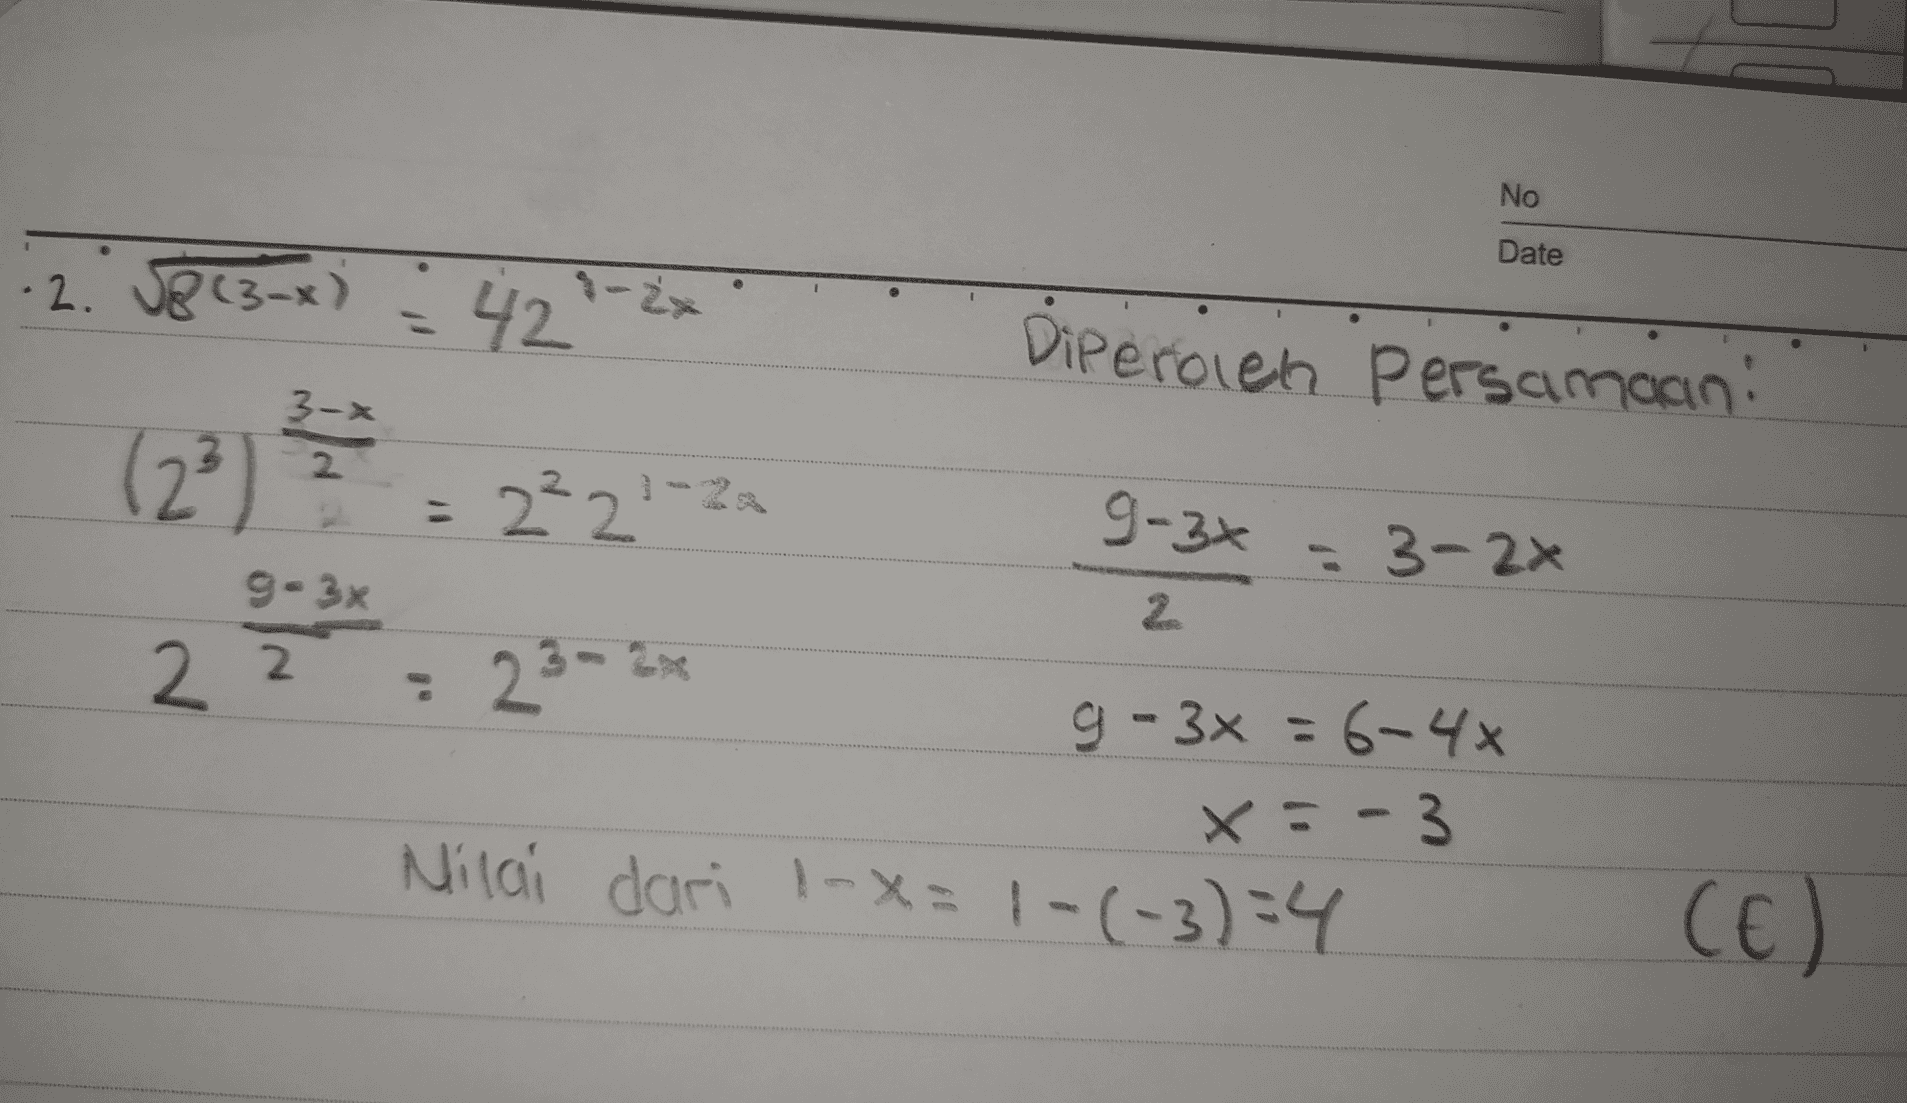 No
Date
2. √8(3-x) = 42^1-2x
(2^3)^(3-x)/2 = 2^2 2^1-2x
2^(9-3x)/2 = 2^3-2x
Diperoleh Persamaan:
(9-3x)/2 = 3-2x
9-3x = 6-4x
x = -3
Nilai dari 1-x = 1-(-3)=4 (E)